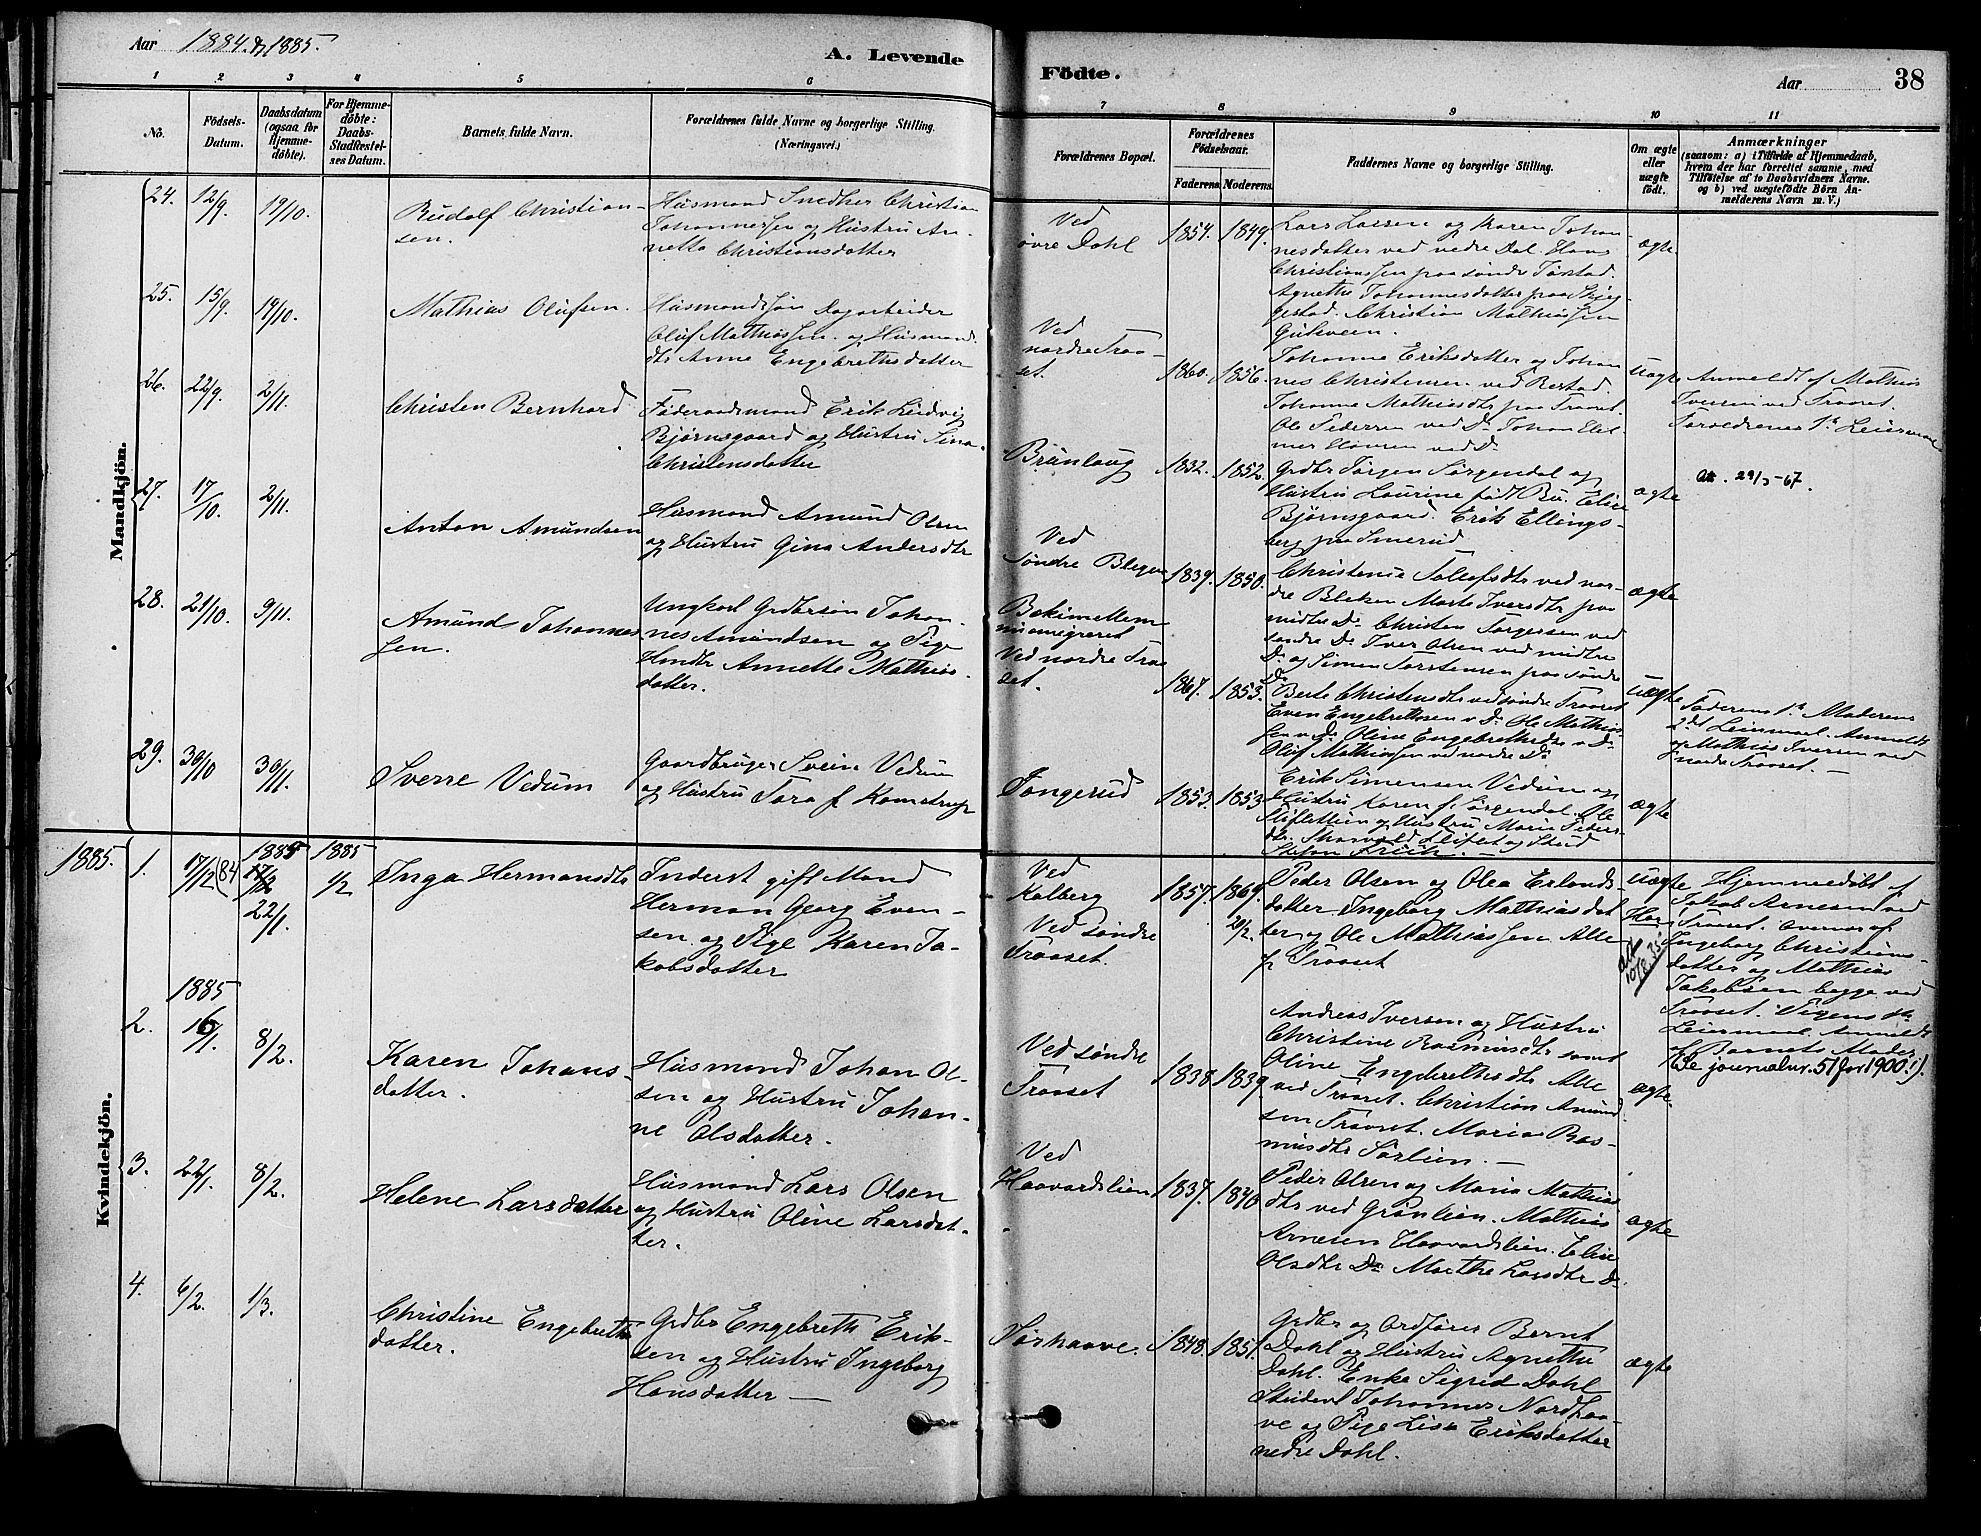 Aar 1884 & 1885.
A. Levende
Födte.
Aar
38
1 2 3 4 5 6 7 8 9 10 11
No.
Födsels-
Datum.
Daabsdatum
(ogsaa for
Hjemme-
döbte).
For Hjemme-
döbte:
Daabs-
Stadfæstel-
ses Datum.
Barnets fulde Navn.
Forældrenes fulde Navne og borgerlige Stilling.
(Næringsvei.)
Forældrenes Bopæl.
Forældrenes
Födselsaar.
Faderens. Moderens.
Faddernes Navne og borgerlige Stilling.
Om ægte
eller
uægte
födt.
Anmærkninger
(saasom: a) i Tilfælde af Hjemmedaab,
hvem der har forrettet samme, med
Tilföielse af to Daabsvidners Navne.
og b) ved uægtefödte Börn An-
melderens Navn m. V.)
Mandkjön.
24. 12/9 19/10.
Rudolf Christian-
sen.
Husmand Snedker Christian
Johannessen og Hustru An-
nette Christiansdatter
Ved
övre Dahl
1854. 1849.
Lars Larsen og Karen Johan-
nesdatter ved nedre Dal. Hans
Christianssen paa søndr Tørstad.
Agnethe Johannesdatter paa Skjeg-
gestad. Christian Mathiassen
ægte
25. 15/9. 19/10.
Mathias Olufsen.
Husmandssøn Dagarbeider
Oluf Mathiassen og Husmand
dtr Anne Engebrethsdatter
Ved
nordre Traa-
set.
1860. 1856.
Johanne Eriksdatter og Johan
nes Christensen ved Bestad.
Johanne Mathiasdtr paa Traaset.
Ole Pedersen ved Do
uægte
Anmeldt af Mathias
Iversen ved Traaset.
Forældrenes 1ste Leiermaal
26. 22/9. 2/11.
Christen Bernhard
Føderaadsmand Erik Ludvig
Bjørnsgaard og Hustru Sina
Christensdatter
Brunlaug
1832. 1852.
Grdbr Jørgen Sørgendal og
Hustru Laurine født Bu. Elise
Bjørnsgaard. Erik Ellings-
berg paa Smerud
ægte
Att. 29/3-67.
27. 17/10. 2/11.
Anton Amundsen
Husmand Amund Olsen
og Hustru Gina Andersdtr
Ved
Søndre Bleken
1839. 1850.
Christense Tolefsdtr ved nor-
dre Bleken Marte Iversdtr paa
midtre Do Christen Torgersen ved
søndre Do Iver Olsen ved midtre
Do og Simen Torstensen paa søndre
Do
ægte
28. 21/10. 9/11.
Amund Johannes
sen.
Ungkarl Grdbrsøn Johan-
nes Amundsen og Pige
Hmdtr Annette Mathias
datter.
Ved nordre Traa
set.
1861. 1853.
Berte Christensdtr ved søndre Traaset
Even Engebrethsen v Do Ole Mathias
sen v Do Oline Engebrethsdtr v Do
Oluf Mathiassen ved nordre Do
uægte
Faderens 1ste Moderens
2det Leiermaal. Anmeldt
af Mathias Iversen ved
nordre Traaset. —
29. 30/10 30/11.
Sverre Vedum
Gaardbruger Svein Vedum
og Hustru Tora f. Komstrup
Tongerud
1853. 1853
Erik Simensen Vedum og
Hustru Karen f. Sørgendal. Ole
og Hustru Maria Peders-
dtr.
ægte
Kvindekjön.
1885.
1. 17/12 (84 1885 22/1. 1885 1/2
Inga Hermansdtr
Inderst gift Mand
Herman Georg Even-
sen og Pige Karen Ja-
kobsdatter
Ved
Kalberg
Ved søndre
Traaset.
1857. 1869. 20/2.
Peder Olsen og Olea Erlands-
datter Ingeborg Mathiasdat
ter og Ole Mathiassen Alle
fr Traaset
uægte
Hor
att 10/8.35.
Hjemmedøbt af
Jakob Arnesen ved
Traaset. Overvær af
Ingeborg Christians-
datter og Mathias
Jakobsen begge ved
Traaset. Pigens 1ste
Leiermaal Anmeldt
af Barnets Moder.
(Se journalnr. 51 for 1900.).
2. 1885 16/1. 8/2.
Karen Johans-
datter.
Husmand Johan Ol-
sen og Hustru Johan-
ne Olsdatter.
Ved søndre
Traaset
1838 1839.
Andreas Iversen og Hustru
Christine Rasmusdtr samt
Oline Engebrethsdtr Alle
ved Traaset. Christian Amund
sen Traaset. Maria Ras-
musdtr Sørlien. —
ægte.
3. 22/1. 8/2.
Helene Larsdatter
Husmand Lars Olsen
og Hustru Oline Larsdat-
ter.
Ved
Haavardslien
1837. 1840
Peder Olsen og Maria Mathias
dtr ved Grønlien. Mathias
Arnesen Haavardslien. Elise
Olsdtr Do Marthe Larsdtr Do
ægte
4. 6/2. 1/3.
Christine Engebreths
datter.
Grdbr Engebreth Erik-
sen og Hustru Ingeborg
Hansdatter —
Sørhaave.
1848. 1851.
Grdbr og Ordfører Bernt
Dahl og Hustru Agnethe
Dahl. Enke Sigrid Dahl
Student Johannes Nordhaa-
ve og Pige Lisa Eriksdatter
nedre Dahl.
ægte